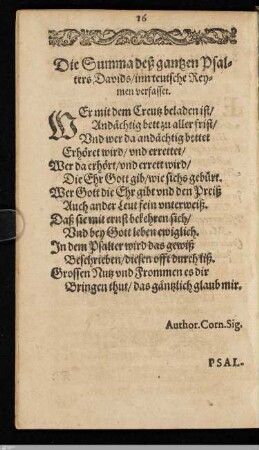 16
Die Summa deß gantzen Psal-
ters Davids/ inn teutsche Rey-
men verfasset.
WEr mit dem Creutz beladen ist/
Andächtig bett zu aller frist/
Vnd wer da andächtig bettet
Erhöret wird/ vnd errettet/
Wer da erhört/ vnd errett wird/
Die Ehr Gott gib/ wie sichs gebürt.
Wer Gott die Ehr gibt vnd den Preiß
Auch ander Leut fein vnterweiß.
Daß sie mit ernst bekehren sich/
Vnd bey Gott leben ewiglich.
In dem Psalter wird das gewiß
Beschrieben/ diesen offt durchliß.
Grossen Nutz vnd Frommen es dir
Bringen thut/ das gäntzlich glaub mir.
Author. Corn. Sig.
PSAL-